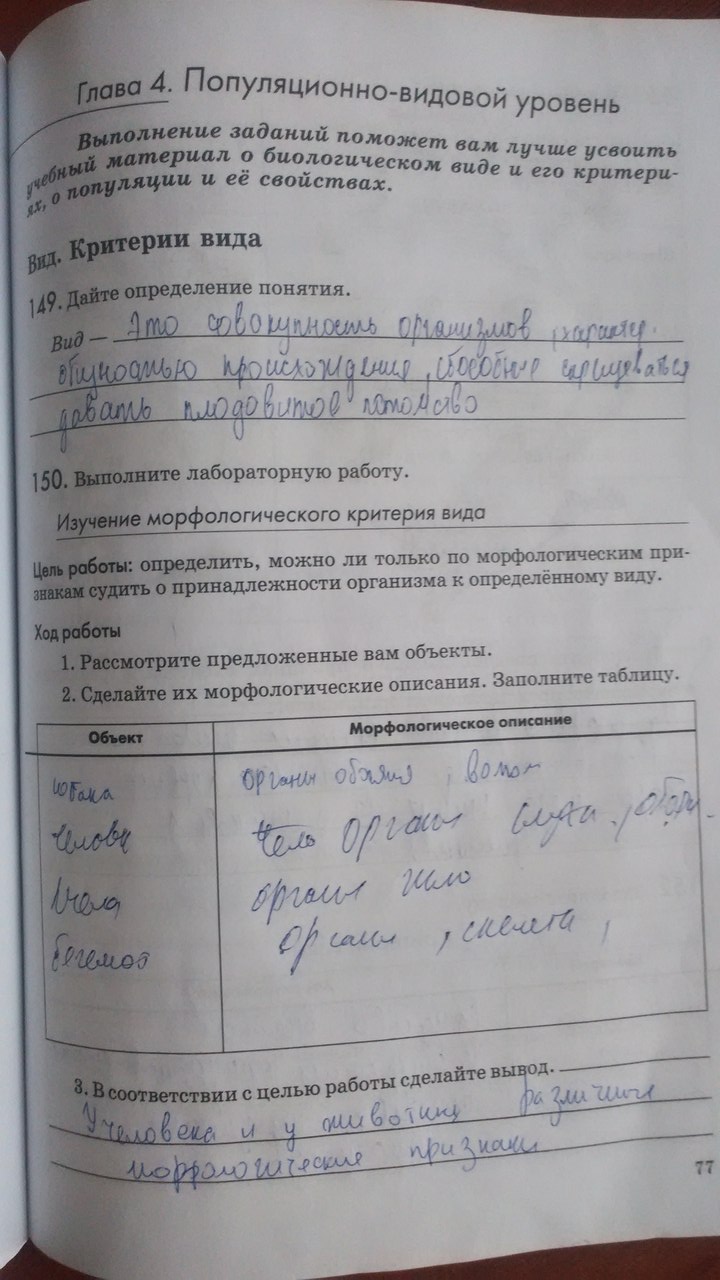 Глава 4. Популяционно-видовой уровень
Выполнение заданий поможет вам лучше усвоить
учебный материал о биологическом виде и его критери-
ях, о популяции и её свойствах.
Вид. Критерии вида
149. Дайте определение понятия.
Вид — Это совокупность организмов, характер.
общностью происхождения, способные скрещиваться
давать плодовитое потомство
150. Выполните лабораторную работу.
Изучение морфологического критерия вида
Цель работы: определить, можно ли только по морфологическим при-
знакам судить о принадлежности организма к определённому виду.
Ход работы
1. Рассмотрите предложенные вам объекты.
2. Сделайте их морфологические описания. Заполните таблицу.
Объект Морфологическое описание
собака органы
органы слуха
Пчела органы
бегемот органы, скелета,
3. В соответствии с целью работы сделайте вывод.
У человека и у животных различные
морфологические признаки
77